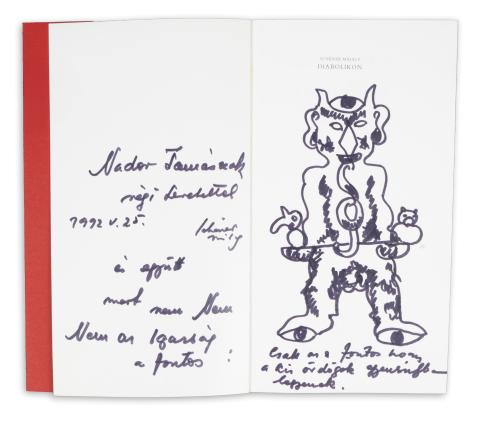 Nádor Tamásnak
régi szeretettel
1992 V. 25.
Schéner
Mihály
és együtt
mert nem Nem
Nem az Igazság
a fontos !
SCHÉNER MIHÁLY
DIABOLIKON
Csak az a fontos hogy
a kis ördögök egyensúlyban
legyenek.